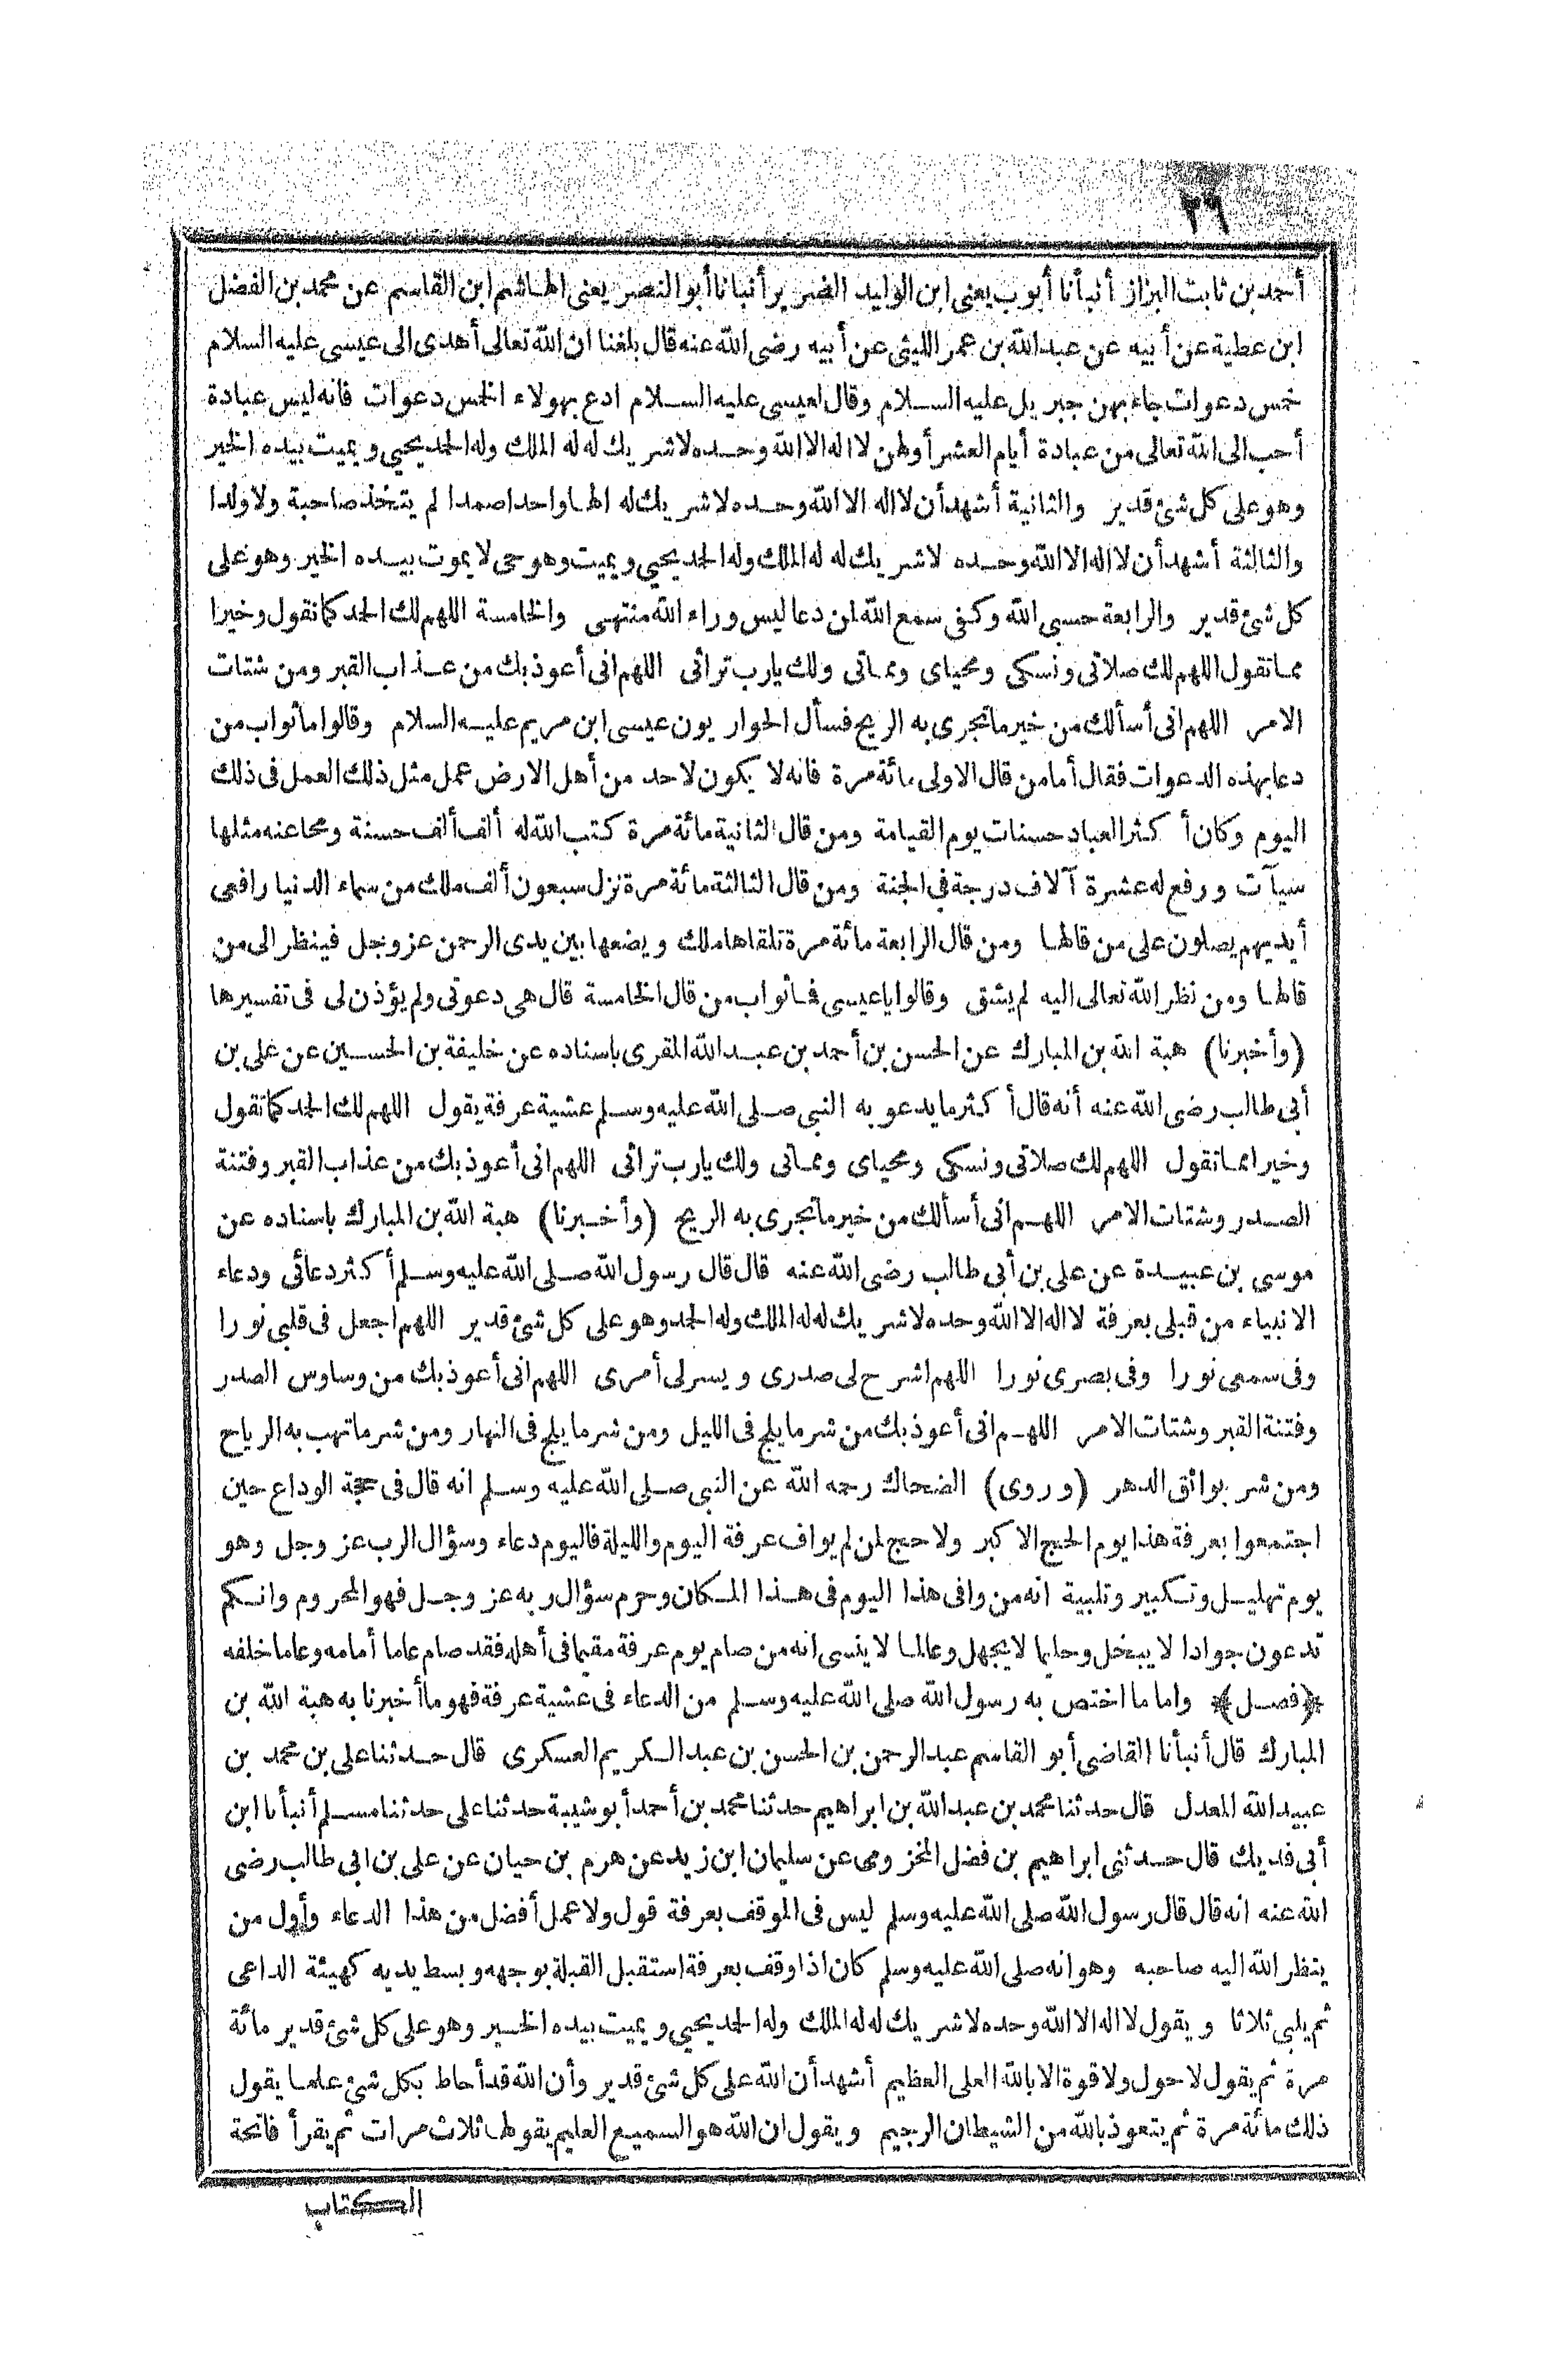 ٢٦
أحمد بن ثابت البزاز أنبأنا أيوب يعنى ابن الوليد الضرير أنبانا أبو النصر يعنى الهاشم ابن القاسم عن محمد بن الفضل
ابن عطية عن أبيه عن عبد الله بن عمر الليثى عن أبيه رضى الله عنه قال بلغنا ان الله تعالى أهدى الى عيسى عليه السلام
خمس دعوات جاء بهن جبريل عليه السلام وقال لعيسى عليه السلام ادع بهولاء الخمس دعوات فانه ليس عبادة
أحب الى الله تعالى من عبادة أيام العشر أولهن لا اله الا الله وحده لا شريك له له الملك وله الحمد يحيي ويميت بيده الخير
وهو على كل شئ قدير والثانية أشهد أن لا اله الا الله وحده لا شريك له الها واحدا صمدا لم يتخذ صاحبة ولا ولدا
والثالثة أشهد أن لا اله الا الله وحده لا شريك له له الملك وله الحمد يحيي ويميت وهو حى لا يموت بيده الخير وهو على
كل شئ قدير والرابعة حسبى الله وكفى سمع الله لمن دعا ليس وراء الله منتهى والخامسة اللهم لك الحمد كما تقول وخيرا
مما نقول اللهم لك صلاتى ونسكى ومحياى ومماتى ولك يارب تراثى اللهم انى أعوذ بك من عذاب القبر ومن شتات
الامر اللهم انى أسألك من خير ما تجرى به الريح فسأل الحواريون عيسى ابن مريم عليه السلام وقالوا ما ثواب من
دعا بهذه الدعوات فقال أما من قال الاولى مائة مرة فانه لا يكون لاحد من أهل الارض عمل مثل ذلك العمل فى ذلك
اليوم وكان أكثر العباد حسنات يوم القيامة ومن قال الثانية مائة مرة كتب الله له ألف ألف حسنة ومحا عنه مثلها
سيآت ورفع له عشرة آلاف درجة فى الجنة ومن قال الثالثة مائة مرة نزل سبعون ألف ملك من سماء الدنيا رافعى
أيديهم يصلون على من قالها ومن قال الرابعة مائة مرة تلقاها ملك ويضعها بين يدى الرحمن عز وجل فينظر الى من
قالها ومن نظر الله تعالى اليه لم يشق وقالوا يا عيسى فما ثواب من قال الخامسة قال هى دعوتى ولم يؤذن لى فى تفسيرها
(وأخبرنا) هبة الله بن المبارك عن الحسن بن أحمد بن عبد الله المقرى باسناده عن خليفة بن الحسين عن على بن
أبى طالب رضى الله عنه أنه قال أكثر ما يدعو به النبى صلى الله عليه وسلم عشية عرفة يقول اللهم لك الحمد كما تقول
وخيرا مما نقول اللهم لك صلاتى ونسكى ومحياى ومماتى ولك يارب تراثى اللهم انى أعوذ بك من عذاب القبر وفتنة
الصدر وشتات الامر اللهم انى أسألك من خير ما تجرى به الريح (وأخبرنا) هبة الله بن المبارك باسناده عن
موسى بن عبيدة عن على بن أبى طالب رضى الله عنه قال قال رسول الله صلى الله عليه وسلم أكثر دعائى ودعاء
الانبياء من قبلى بعرفة لا اله الا الله وحده لا شريك له له الملك وله الحمد وهو على كل شئ قدير اللهم اجعل فى قلبى نورا
وفى سمعى نورا وفى بصرى نورا اللهم اشرح لى صدرى ويسر لى أمرى اللهم انى أعوذ بك من وساوس الصدر
وفتنة القبر وشتات الامر اللهم انى أعوذ بك من شر ما يلج فى الليل ومن شر ما يلج فى النهار ومن شر ما تهب به الرياح
ومن شر بوائق الدهر (وروى) الضحاك رحمه الله عن النبى صلى الله عليه وسلم انه قال فى حجة الوداع حين
اجتمعوا بعرفة هذا يوم الحج الاكبر ولا حج لمن لم يواف عرفة اليوم والليلة فاليوم دعاء وسؤال الرب عز وجل وهو
يوم تهليل وتكبير وتلبية انه من وافى هذا اليوم فى هذا المكان وحرم سؤال ربه عز وجل فهو المحروم وانكم
تدعون جوادا لا يبخل وحليما لا يجهل وعالما لا ينسى انه من صام يوم عرفة مقيما فى أهله فقد صام عاما أمامه وعاما خلفه
﴿فصل﴾ واما ما اختص به رسول الله صلى الله عليه وسلم من الدعاء فى عشية عرفة فهو ما أخبرنا به هبة الله بن
المبارك قال أنبأنا القاضى أبو القاسم عبد الرحمن بن الحسن بن عبد الكريم العسكرى قال حدثنا على بن محمد بن
عبيد الله المعدل قال حدثنا محمد بن عبد الله بن ابراهيم حدثنا محمد بن أحمد أبو شيبة حدثنا على حدثنا مسلم أنبأنا ابن
أبى فديك قال حدثنى ابراهيم بن فضل المخزومى عن سليمان ابن زيد عن هرم بن حيان عن على بن ابى طالب رضى
الله عنه انه قال قال رسول الله صلى الله عليه وسلم ليس فى الموقف بعرفة قول ولا عمل أفضل من هذا الدعاء وأول من
ينظر الله اليه صاحبه وهو انه صلى الله عليه وسلم كان اذا وقف بعرفة استقبل القبلة بوجهه وبسط يديه كهيئة الداعى
ثم يلبى ثلاثا ويقول لا اله الا الله وحده لا شريك له له الملك وله الحمد يحيي ويميت بيده الخير وهو على كل شئ قدير مائة
مرة ثم يقول لا حول ولا قوة الا بالله العلى العظيم أشهد أن الله على كل شئ قدير وأن الله قد أحاط بكل شئ علما يقول
ذلك مائة مرة ثم يتعوذ بالله من الشيطان الرجيم ويقول ان الله هو السميع العليم يقولها ثلاث مرات ثم يقرأ فاتحة
الكتاب